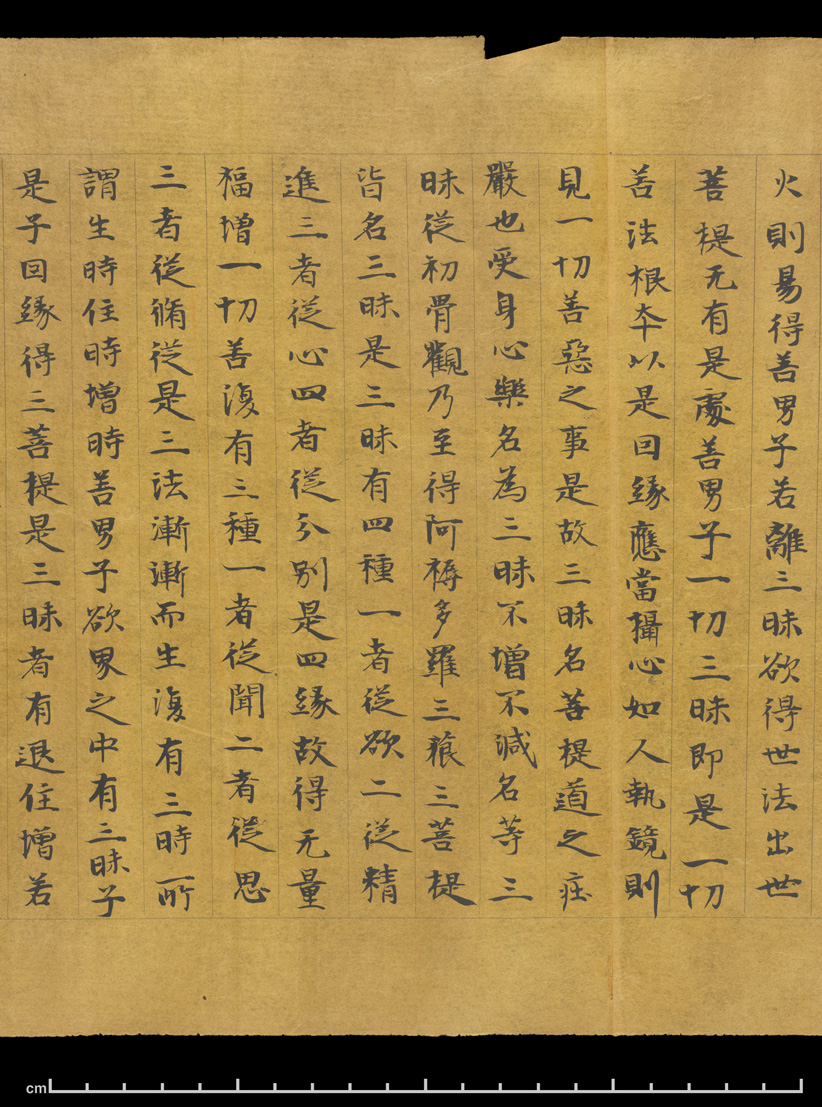 火則易得善男子若離三昧欲得世法出世
菩提无有是處善男子一切三昧即是一切
善法根本以是因緣應當攝心如人執鏡則
見一切善惡之事是故三昧名菩提道之莊
嚴也受身心樂名為三昧不增不減名等三
昧從初骨觀乃至得阿耨多羅三藐三菩提
皆名三昧是三昧有四種一者從欲二從精
進三者從心四者從分別是四緣故得无量
福增一切善復有三種一者從聞二者從思
三者從脩從是三法漸漸而生復有三時所
謂生時住時增時善男子欲界之中有三昧子
是子因緣得三菩提是三昧者有退住增若